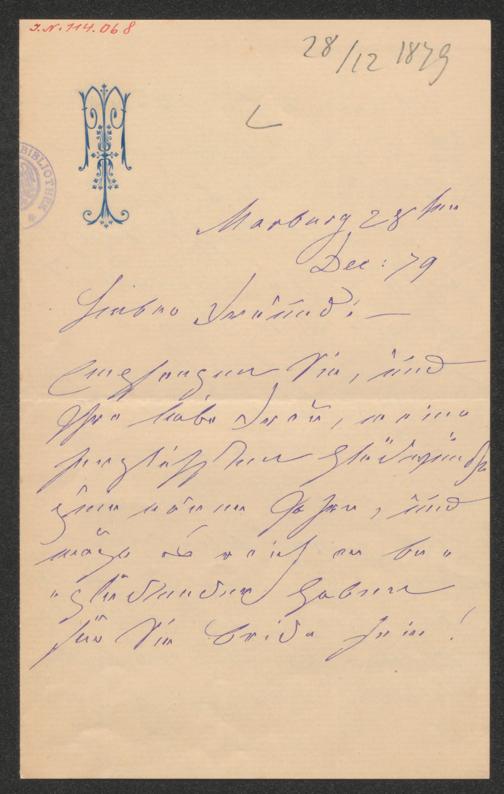 J.N. 114.068
28/12 1879
T
BIBLIOTHEK
Marburg 28ten
Dec: 79
Lieber Freund! —
Empfangen Sie, und
Ihre liebe Frau, meine
herzlichsten Glückwünsche
zum neuen Jahre, und
möge es reich an be-
-glückenden Gaben
für Sie beide sein!